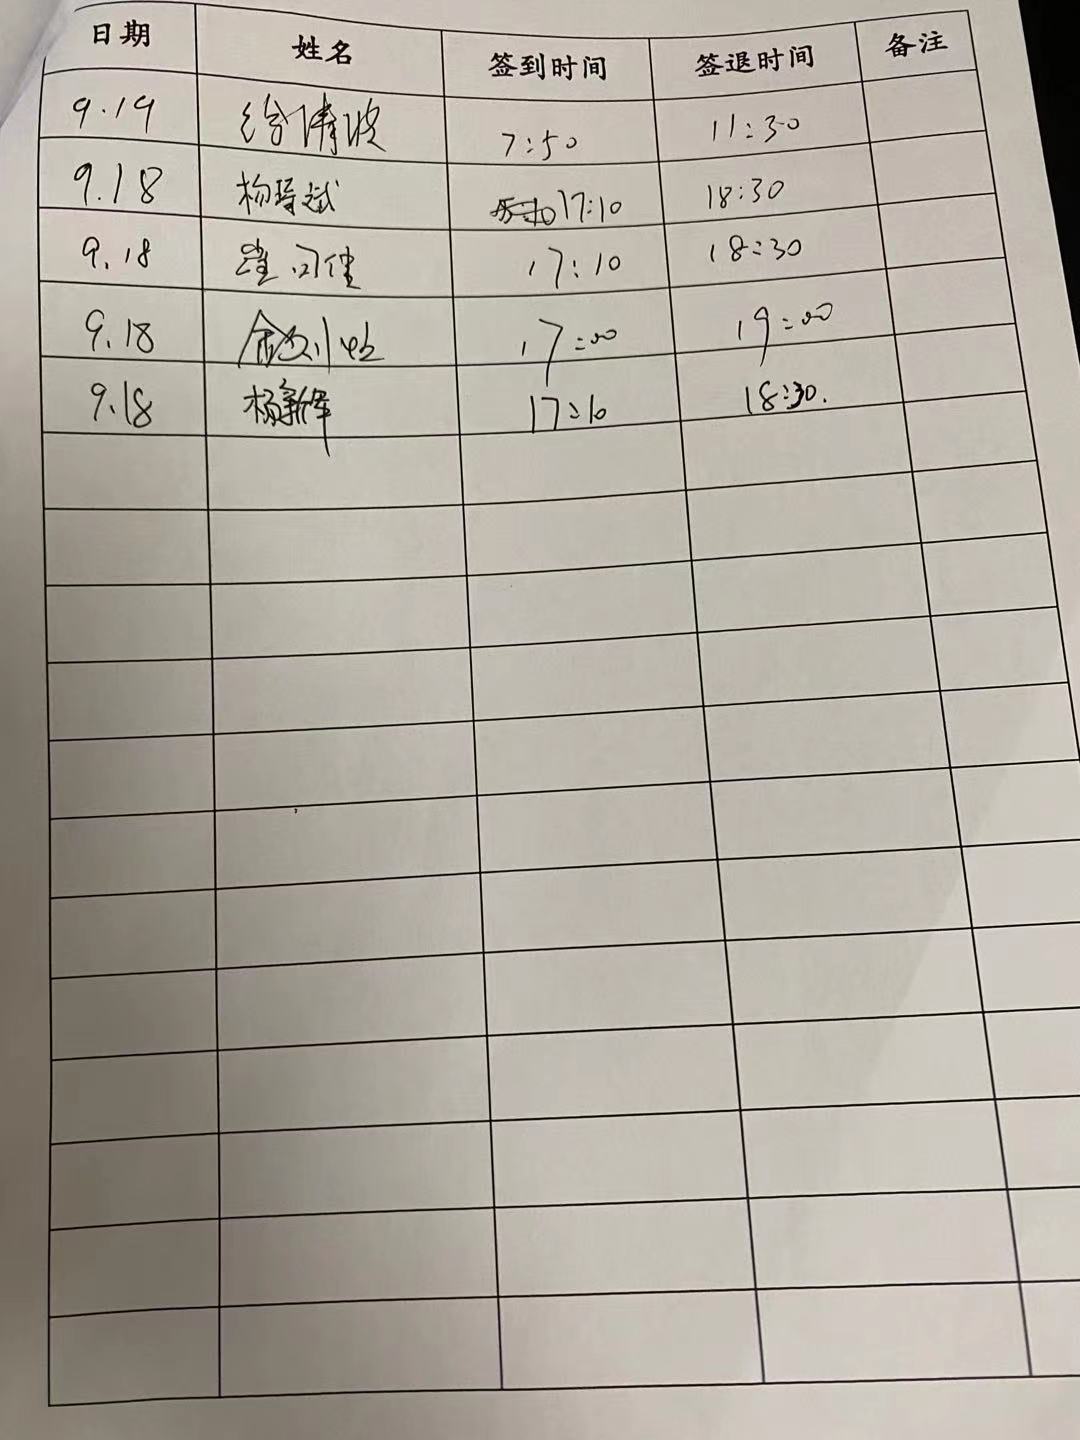 日期 姓名 签到时间 签退时间 备注
9.19 徐倩波 7:50 11:30
9.18 杨 斌 17:10 18:30
9.18 佳 17:10 18:30
9.18 17:00 19:00
9.18 杨新辉 17:10 18:30.